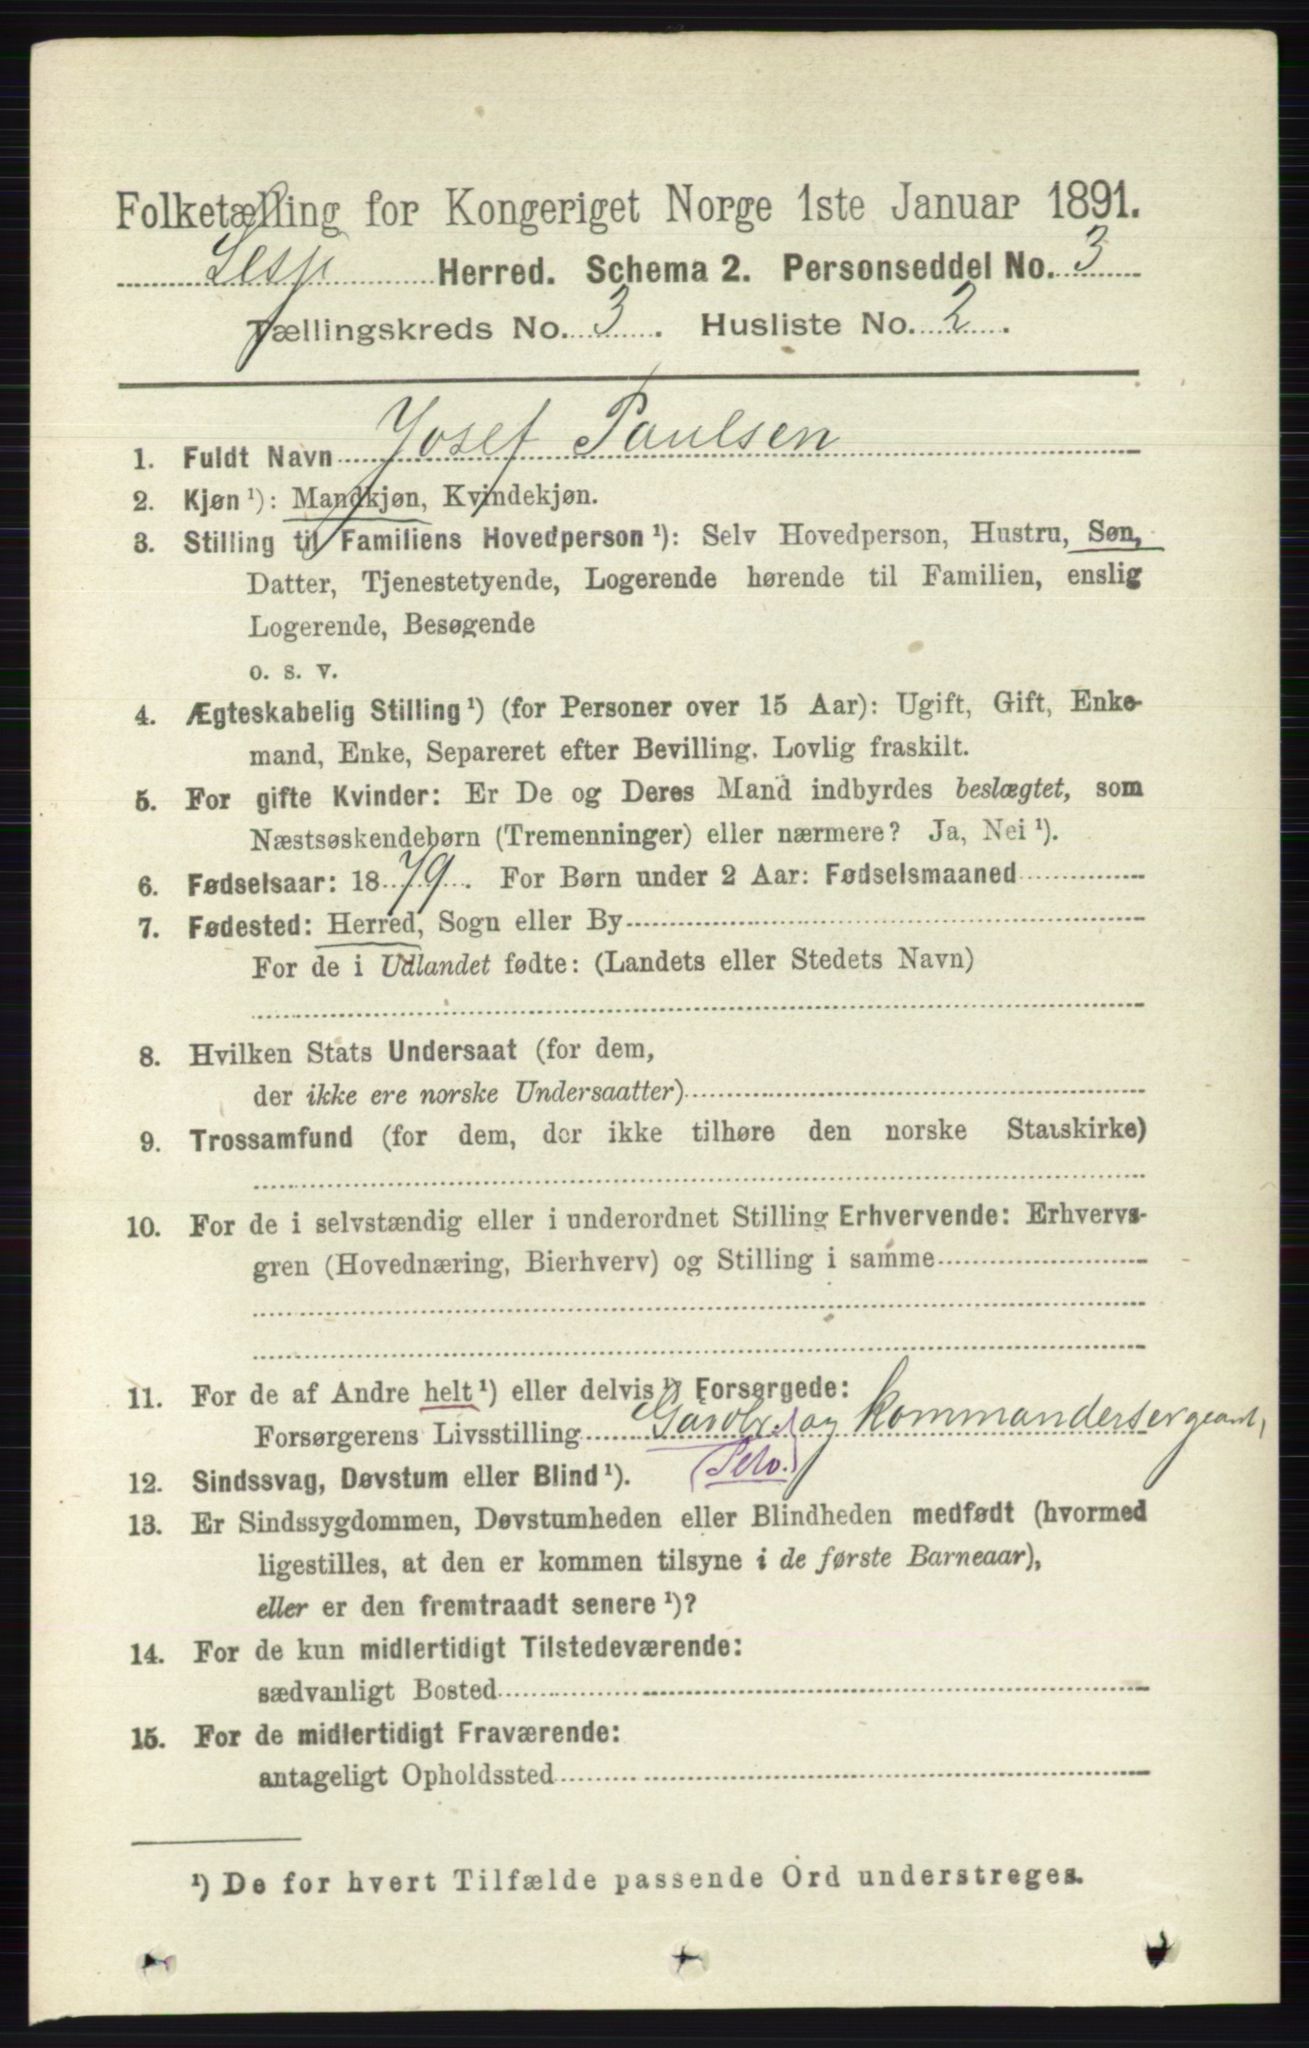 Folketælling for Kongeriget Norge 1ste Januar 1891.
Lesje Herred. Schema 2. Personseddel No. 3
Tællingskreds No. 3. Husliste No. 2.
1. Fuldt Navn Josef Paulsen
2. Kjøn ¹): Mandkjøn, Kvindekjøn.
3. Stilling til Familiens Hovedperson ¹): Selv Hovedperson, Hustru, Søn,
Datter, Tjenestetyende, Logerende hørende til Familien, enslig
Logerende, Besøgende
o. s. v.
4. Ægteskabelig Stilling ¹) (for Personer over 15 Aar): Ugift, Gift, Enke-
mand, Enke, Separeret efter Bevilling. Lovlig fraskilt.
5. For gifte Kvinder: Er De og Deres Mand indbyrdes beslægtet, som
Næstsøskendebørn (Tremenninger) eller nærmere? Ja, Nei ¹).
6. Fødselsaar: 1879. For Børn under 2 Aar: Fødselsmaaned
7. Fødested: Herred, Sogn eller By
For de i Udlandet fødte: (Landets eller Stedets Navn)
8. Hvilken Stats Undersaat (for dem,
der ikke ere norske Undersaatter)
9. Trossamfund (for dem, der ikke tilhøre den norske Statskirke)
10. For de i selvstændig eller i underordnet Stilling Erhvervende: Erhvervs-
gren (Hovednæring, Bierhverv) og Stilling i samme
11. For de af Andre helt ¹) eller delvis ¹) Forsørgede:
Forsørgerens Livsstilling Gaardbr. og Kommandersergeant,
(Selv.)
12. Sindssvag, Døvstum eller Blind ¹).
13. Er Sindssygdommen, Døvstumheden eller Blindheden medfødt (hvormed
ligestilles, at den er kommen tilsyne i de første Barneaar),
eller er den fremtraadt senere ¹)?
14. For de kun midlertidigt Tilstedeværende:
sædvanligt Bosted
15. For de midlertidigt Fraværende:
antageligt Opholdssted
¹) De for hvert Tilfælde passende Ord understreges.